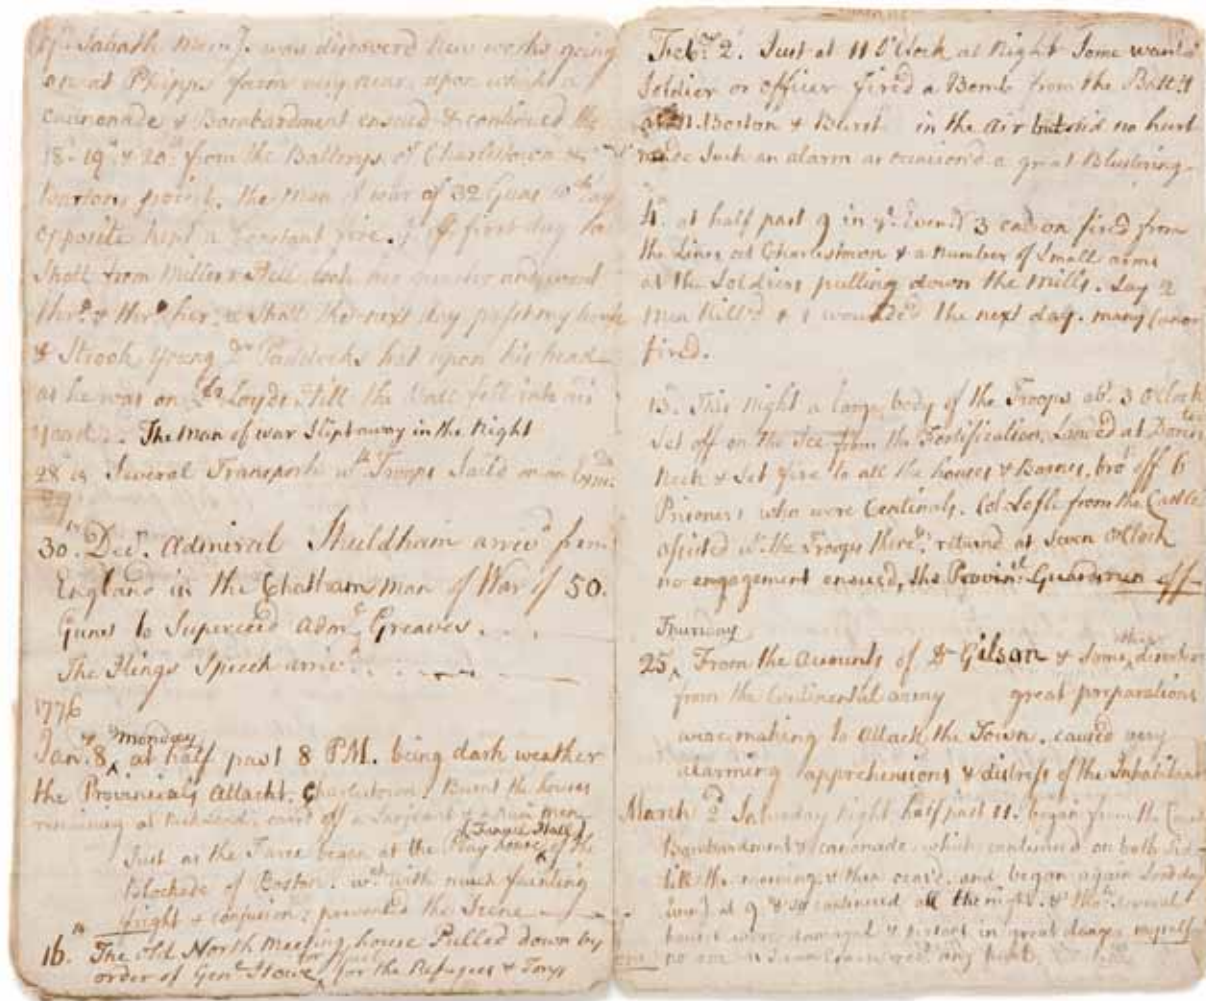 17th. Sabath Morng. was discoverd New works going
on at Phipps farm very near, upon which a
cannonade & Bombardment ensued & continued the
18th 19th & 20th from the Batterys of Charlestown &
Bartons point, the Man of war of 32 Guns wch lay
opposite kept a constant fire. ye first day
Shott from Millers Hill took her quarter and went
thro' & thro' her. a Shott the next day past my house
& Strook young Dr Paddocks hat upon his head
as he was on Dr Loyds Hill the Ball fell into his
yard. The Man of war Slipt away in the Night
28th is Several Transports wth Troops Saild on an
29
30th. Decr. Admiral Shuldham arrivd from
England in the Chatham Man of War of 50.
Guns to Superceed Adml. Greaves.
The Kings Speech arrivd
1776
Janry 8 Monday at half past 8 PM. being dark weather
the Provincials Attackt Charlestown. Burnt the houses
remaining at carrd off a Sargeant & Men
Just as the Farce began at the Play house (Faneuil Hall) of the
Blockade of Boston. wch with much fainting
fright & confusion prevented the Scene
16th. The old North Meeting house Pulled down by
order of Genl Howe for fuel for the Refugees & Torys
Febry 2. Just at 11 O'Clock at Night Some wanton
Soldier or officer fired a Bomb from the Batty
at N. Boston & Burst in the air but did no hurt
made Such an alarm as occasiond a great Blustering
4th. at half past 9 in ye Eveng 3 cannon fired from
the Lines at Charlestown & a number of Small arms
at the Soldiers pulling down the Mills. Say 2
Men Killd & 1 wounded the next day. many Canon
fired.
13. This Night a large body of the Troops abt. 3 O'Clock
Set off on the Ice from the Fortification, Landed at Dorchester
Neck & Set fire to all the houses & Barnes, bro't off 6
Prisoners who were Centinals. Col Lesle from the Castle
assisted wth the Troops there. returned at Seven O'Clock
no engagement ensued, the Provinl. Guard run off
Thursday
25 From the Accounts of Dr Gilson & Some other deserters
from the Continental army great preparations
was making to Attack the Town. caused very
alarming apprehensions & distress of the Inhabitants
March 2d Saturday Night half past 11. began from the
Bombardment & Canonade which continued on both
till the morning & then ceas'd. and began again Lords day
Eveng at 9 & so continued all the night. & tho'. several
houses were damaged & persons in great danger myself
no one any hurt.